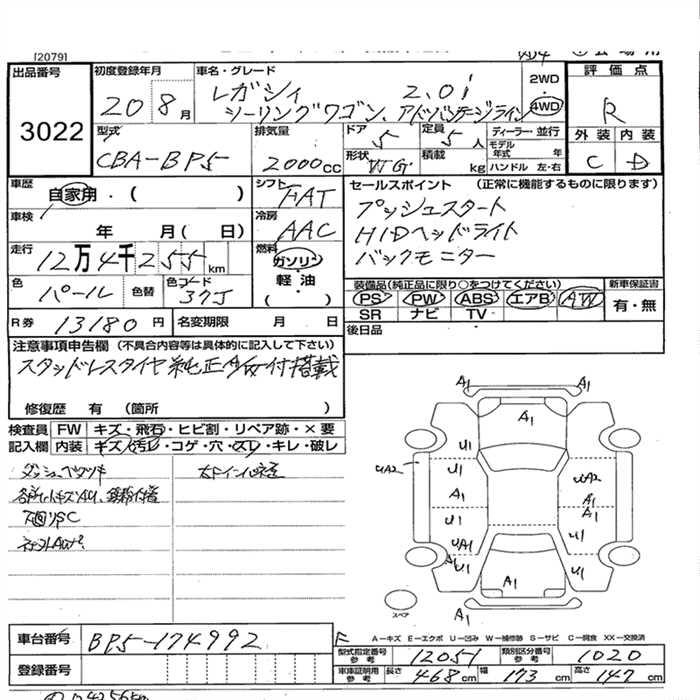 [20791
出品番号
3022
初度登録年月
20 8月
車名・グレード
レガシィ 2.0i
ツーリングワゴン、アドバンテージライン
2WD
4WD
評価点
R
外装 内装
C D
型式
CBA-BP5
排気量
2000cc
ドア
5
定員
5人
形状
WG
積載
kg
ディーラー・並行
モデル年式 年
ハンドル 左・右
車歴
自家用・( )
シフト
FAT
車検
年 月( 日)
冷房
AAC
走行
12万4千255km
燃料
ガソリン・軽油・( )
色
パール
色替
色コード
37J
R券
13180円
名変期限 月 日
セールスポイント (正常に機能するものに限ります)
プッシュスタート
HIDヘッドライト
バックモニター
装備品(純正品に限り○をつけてください)
PS PW ABS エアB AW
SR ナビ TV
新車保証書
有・無
後日品
注意事項申告欄 (不具合内容等は具体的に記入して下さい)
スタッドレスタイヤ 純正AW付搭載
修復歴 有 (箇所 )
検査員記入欄
FW キズ・飛石・ヒビ割・リペア跡・×要
内装 キズ・汚レ・コゲ・穴・スレ・キレ・破レ
ダッシュベタツキ
下回りSC
A1 A1
A1
U1 U1
UA2 UA2
A1 A1
A1
U1
UA1 U1
A1
U1 U1
A1
A1
スペア
A-キズ E-エクボ U-凹み W-補修跡 S-サビ C-腐食 XX-交換済
車台番号
BP5-174992
登録番号
型式指定番号参考
12051
類別区分番号参考
1020
車庫証明用参考
長さ 468cm 幅 173cm 高さ 147cm